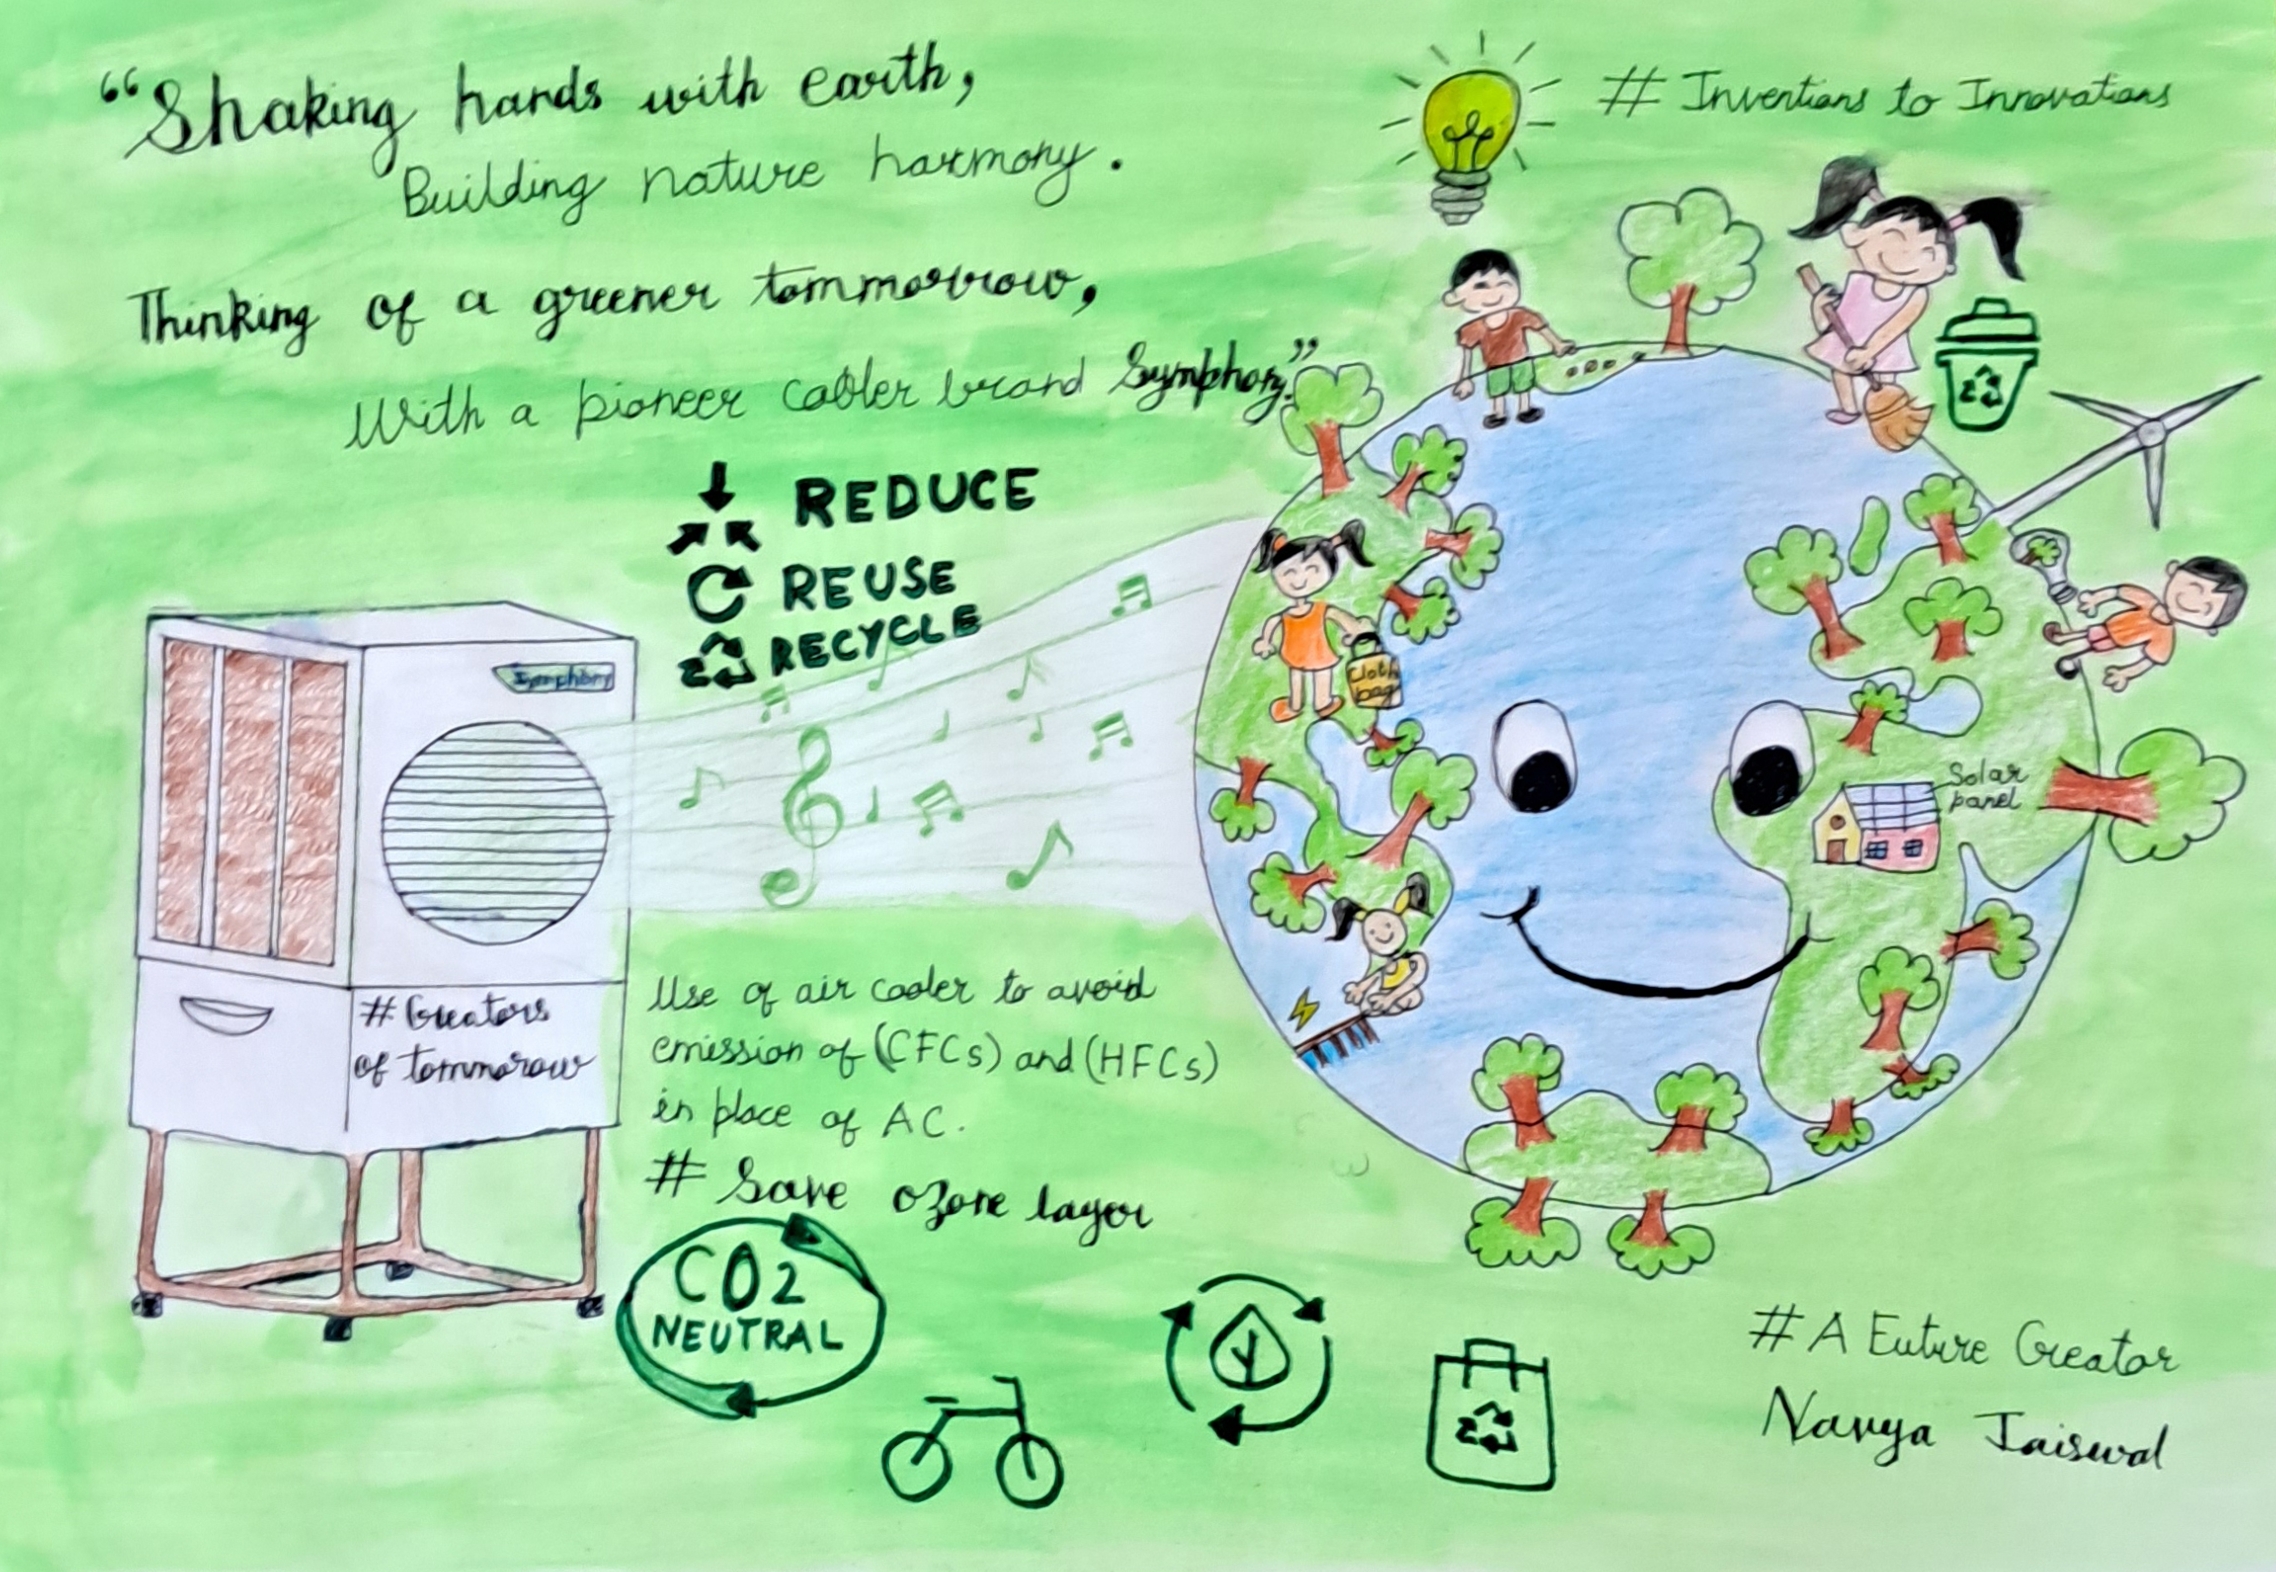 “Shaking hands with earth,
Building nature harmony.
Thinking of a greener tommorrow,
With a pioneer cooler brand Symphony.”
# Inventions to Innovations
REDUCE
REUSE
RECYCLE
Symphony
# Creators
of tommorow
Cloth
bag
Solar
panel
Use of air cooler to avoid
emission of (CFCs) and (HFCs)
in place of AC.
# Save ozone layer
CO2
NEUTRAL
# A Future Creator
Navya Jaiswal